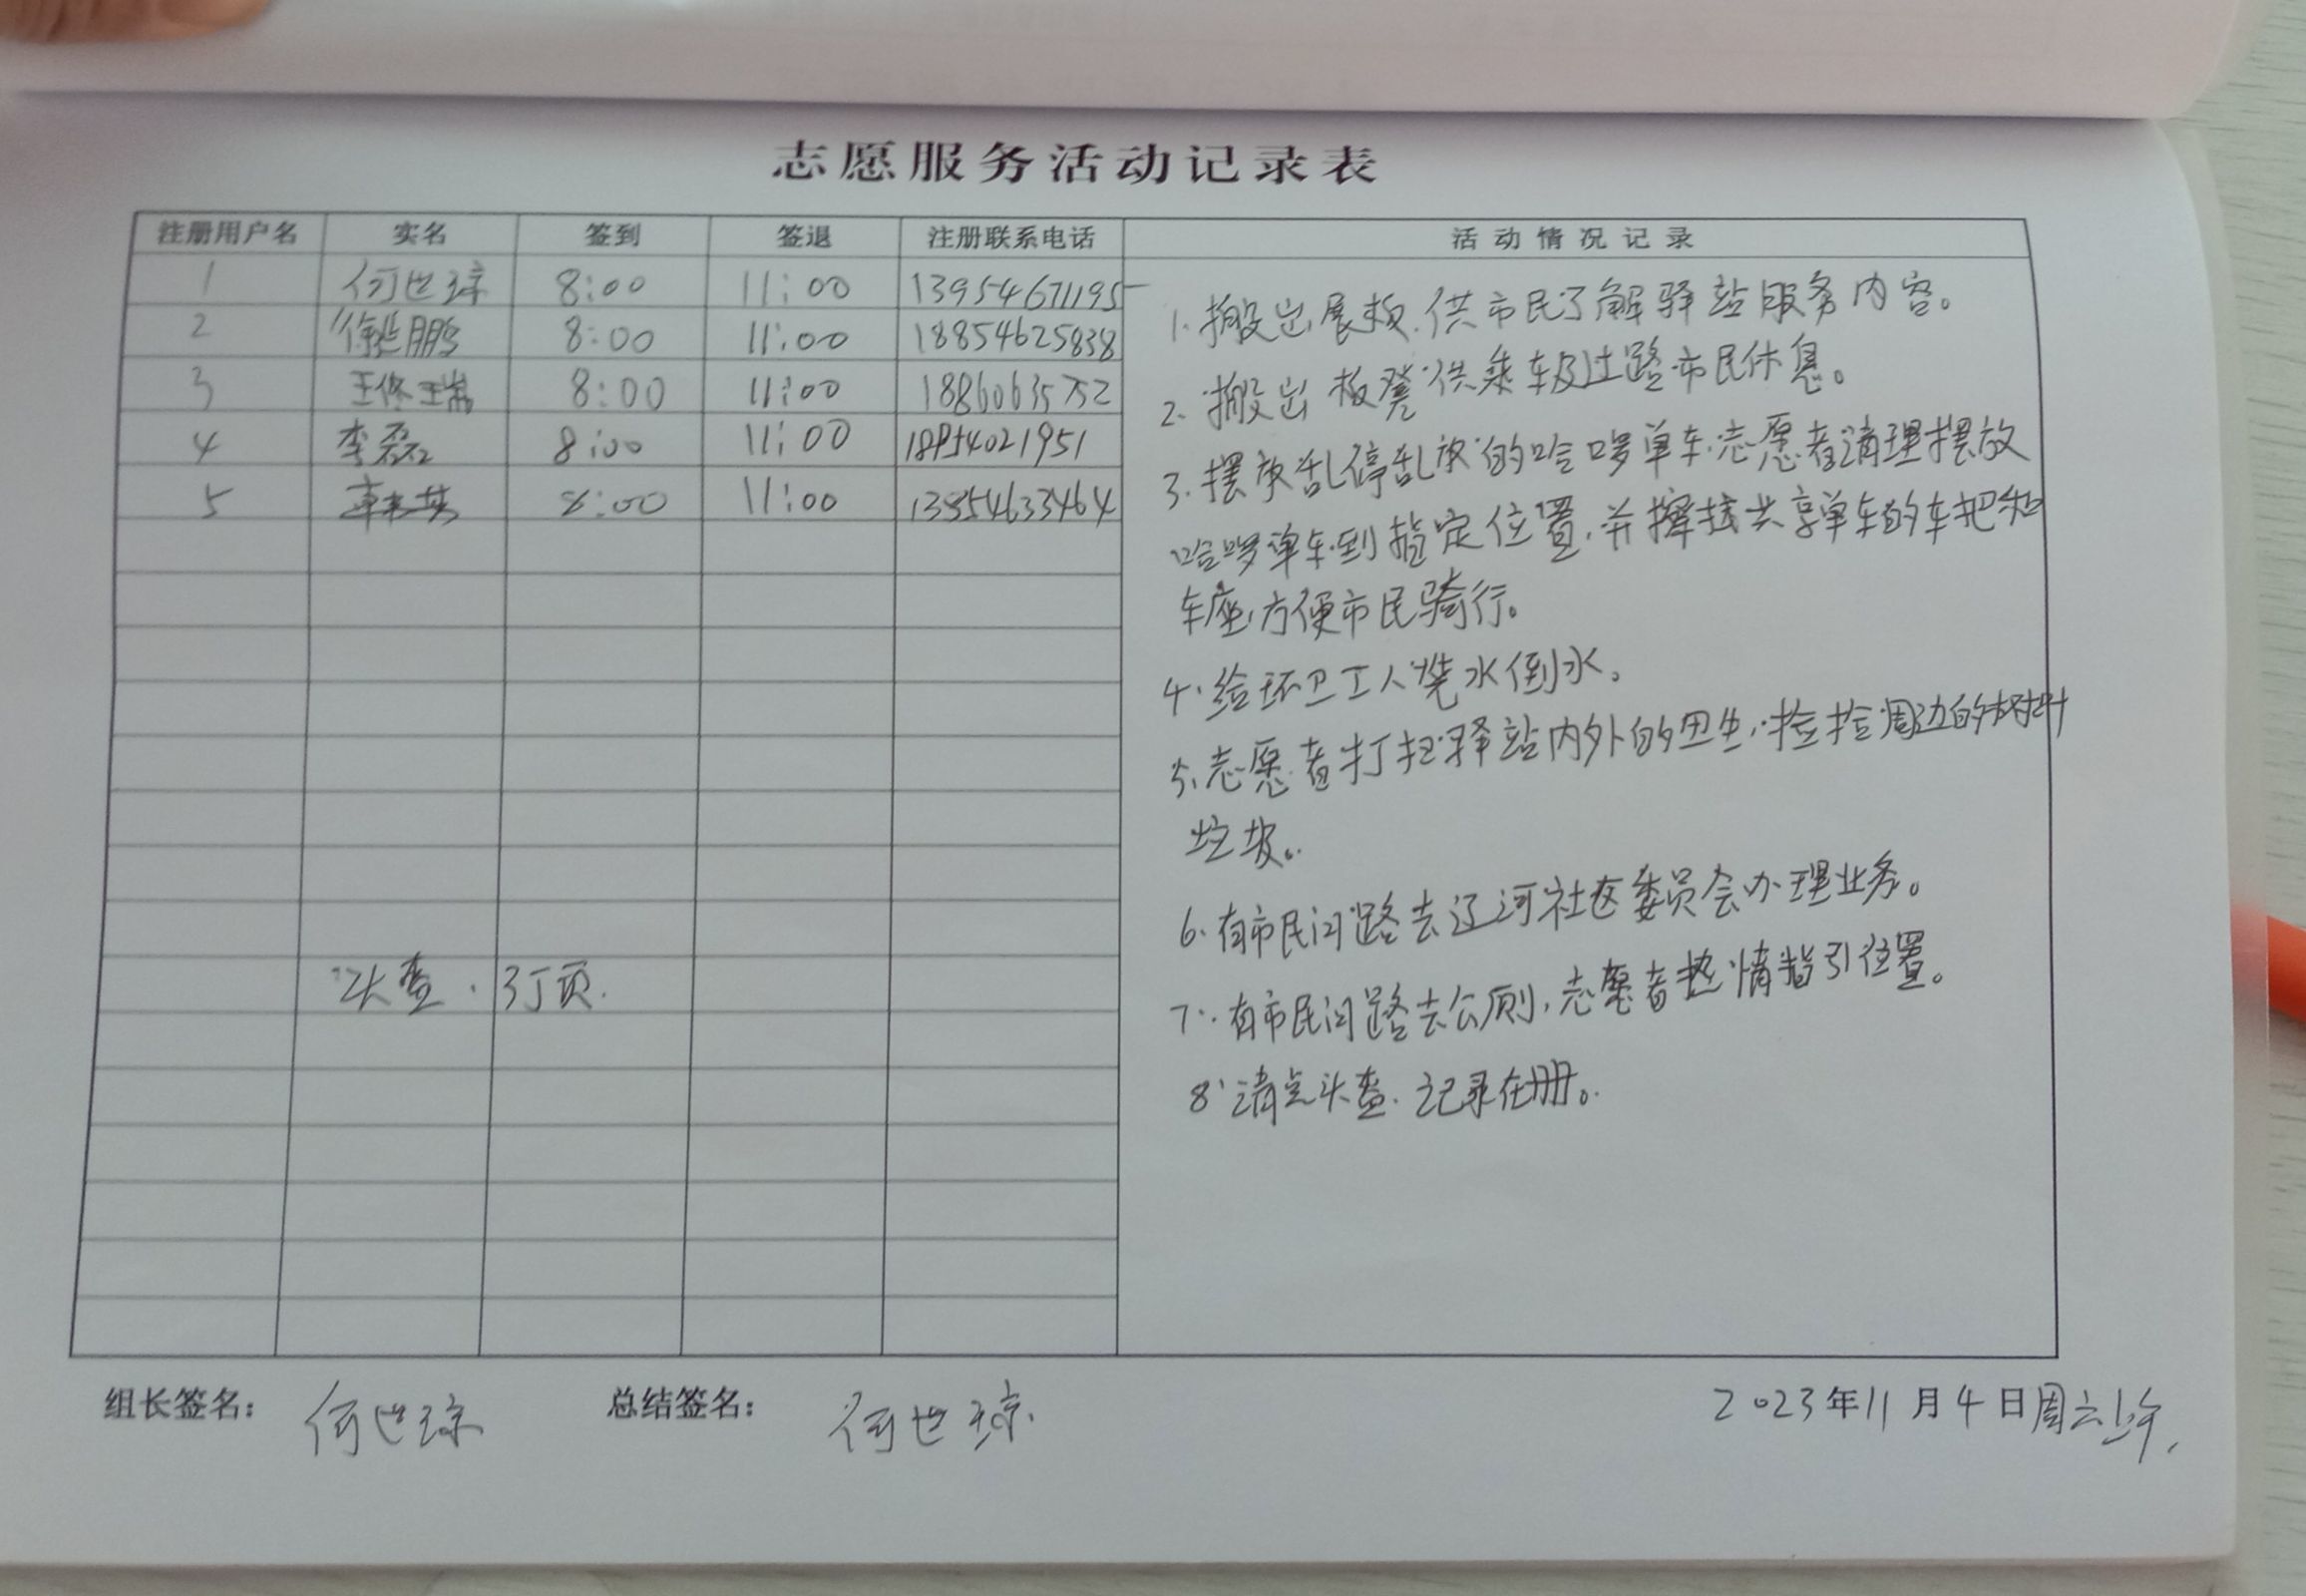 志愿服务活动记录表
注册用户名 实名 签到 签退 注册联系电话 活动情况记录
1 何世琼 8:00 11:00 13954671195
2 徐延鹏 8:00 11:00 18854625838
3 王修瑞 8:00 11:00
4 李磊 8:00 11:00 18954021951
5 8:00 11:00
1. 搬出展板.供市民了解驿站服务内容。
2. 搬出板凳供乘车及过路市民休息。
3. 摆放乱停乱放的哈啰单车.志愿者清理摆放
哈啰单车到指定位置,并擦拭共享单车的车把和
车座,方便市民骑行。
4. 给环卫工人烧水倒水。
5. 志愿者打扫驿站内外的卫生,捡拾周边的树叶
垃圾。
6. 有市民问路去辽河社区委员会办理业务。
7. 有市民问路去公厕,志愿者热情指引位置。
8 清点头盔.记录在册。
头盔.3丁页.
组长签名: 何世琼 总结签名: 何世琼. 2023年11月4日周六上午.